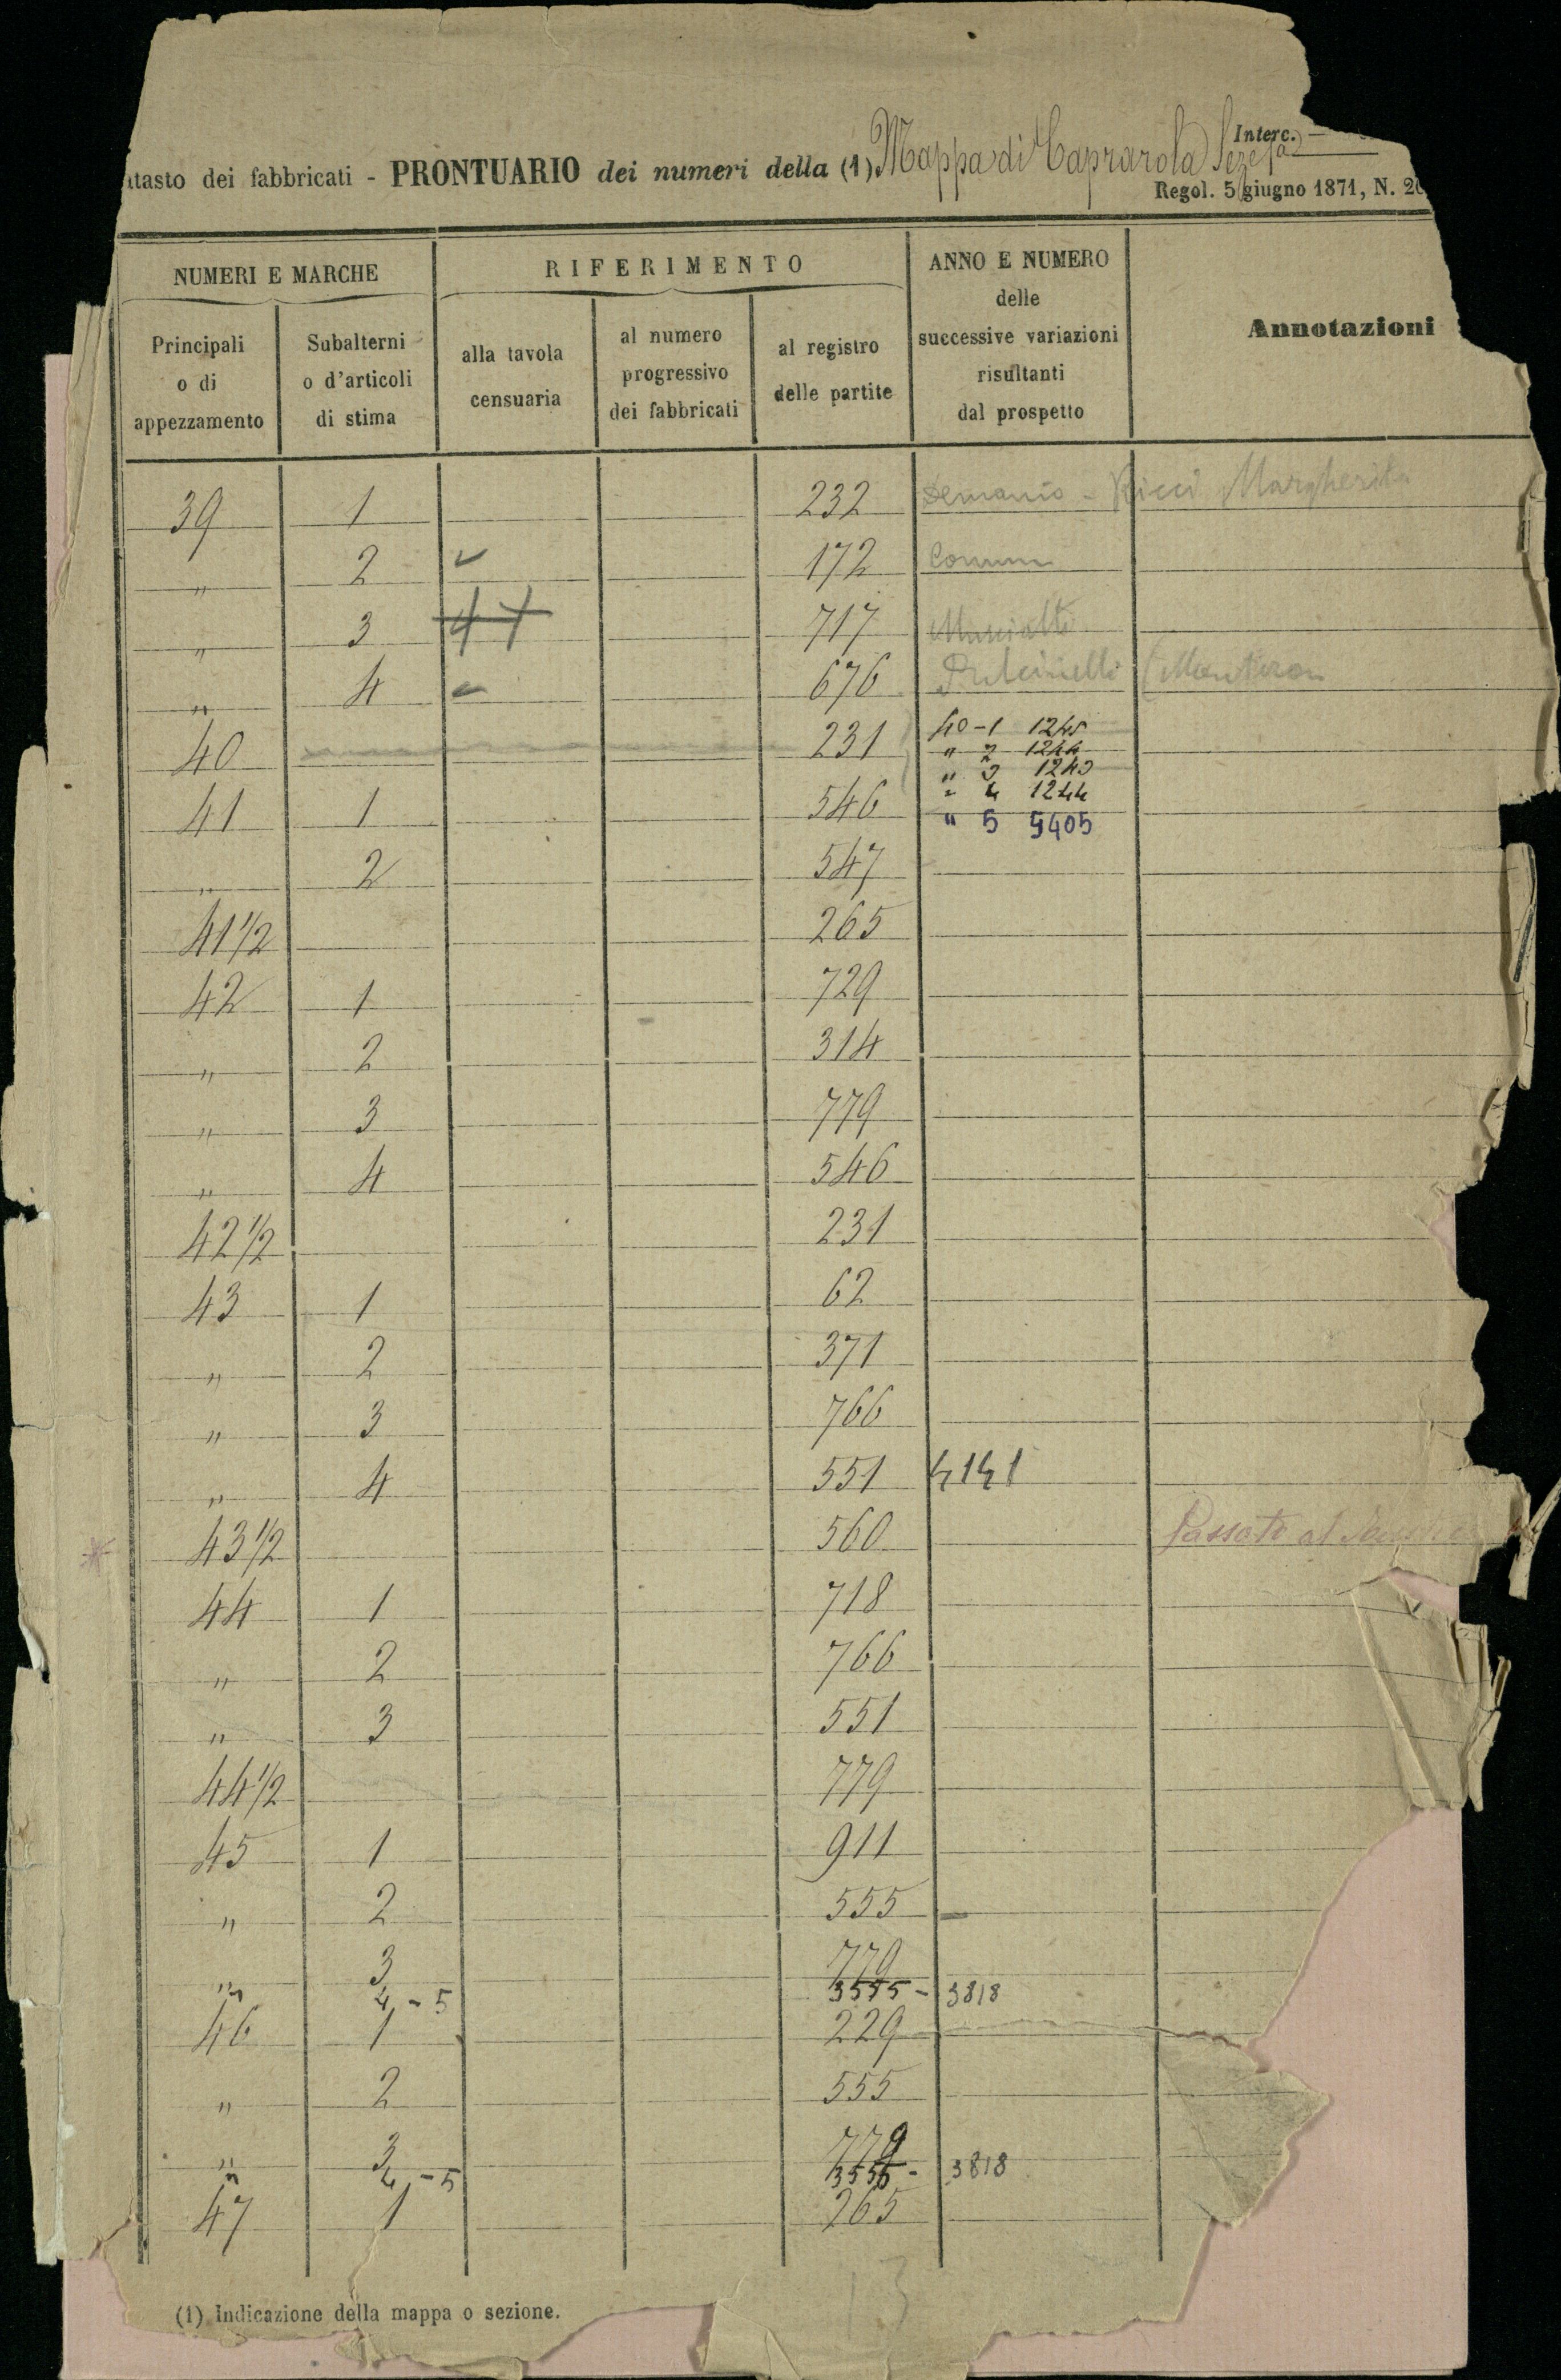 Interc. —
atasto dei fabbricati - PRONTUARIO dei numeri della (1) Mappa di Caprarola
Regol. 5 giugno 1871, N. 2
NUMERI E MARCHE RIFERIMENTO ANNO E NUMERO delle successive variazioni risultanti dal prospetto Annotazioni
Principali o di appezzamento Subalterni o d'articoli di stima alla tavola censuaria al numero progressivo dei fabbricati al registro delle partite
39 1 232 Demanio - Ricci Margherita
" 2 172 Comune
" 3 717
" 4 676
40 231 40-1 1245
" 2 1244
" 3 1243
41 1 546 " 4 1244
" 5 5405
" 2 547
41 1/2 265
42 1 729
" 2 314
" 3 779
" 4 546
42 1/2 231
43 1 62
" 2 371
" 3 766
" 4 551 4141
43 1/2 560 Passato al
44 1 718
" 2 766
" 3 551
44 1/2 779
45 1 911
" 2 555
" 3 779
" 4-5 3555- 3818
46 1 229
" 2 555
" 3 779
" 4-5 3556- 3818
47 1 265
13
(1) Indicazione della mappa o sezione.